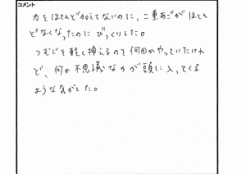 コメント
力をほとんど加えてないのに、二重あごがほとん
どなくなったのにびっくりした。
つむじを軽く押えるので何回かやっていたけれ
ど、何か不思議な力が頭に入ってくる
ような気がした。